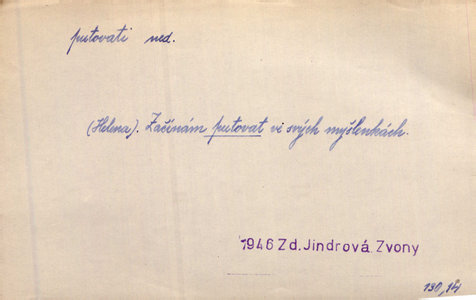 putovati ned.
(Helena). Začínám putovat ve svých myšlenkách.
1946 Zd. Jindrová. Zvony
130,14